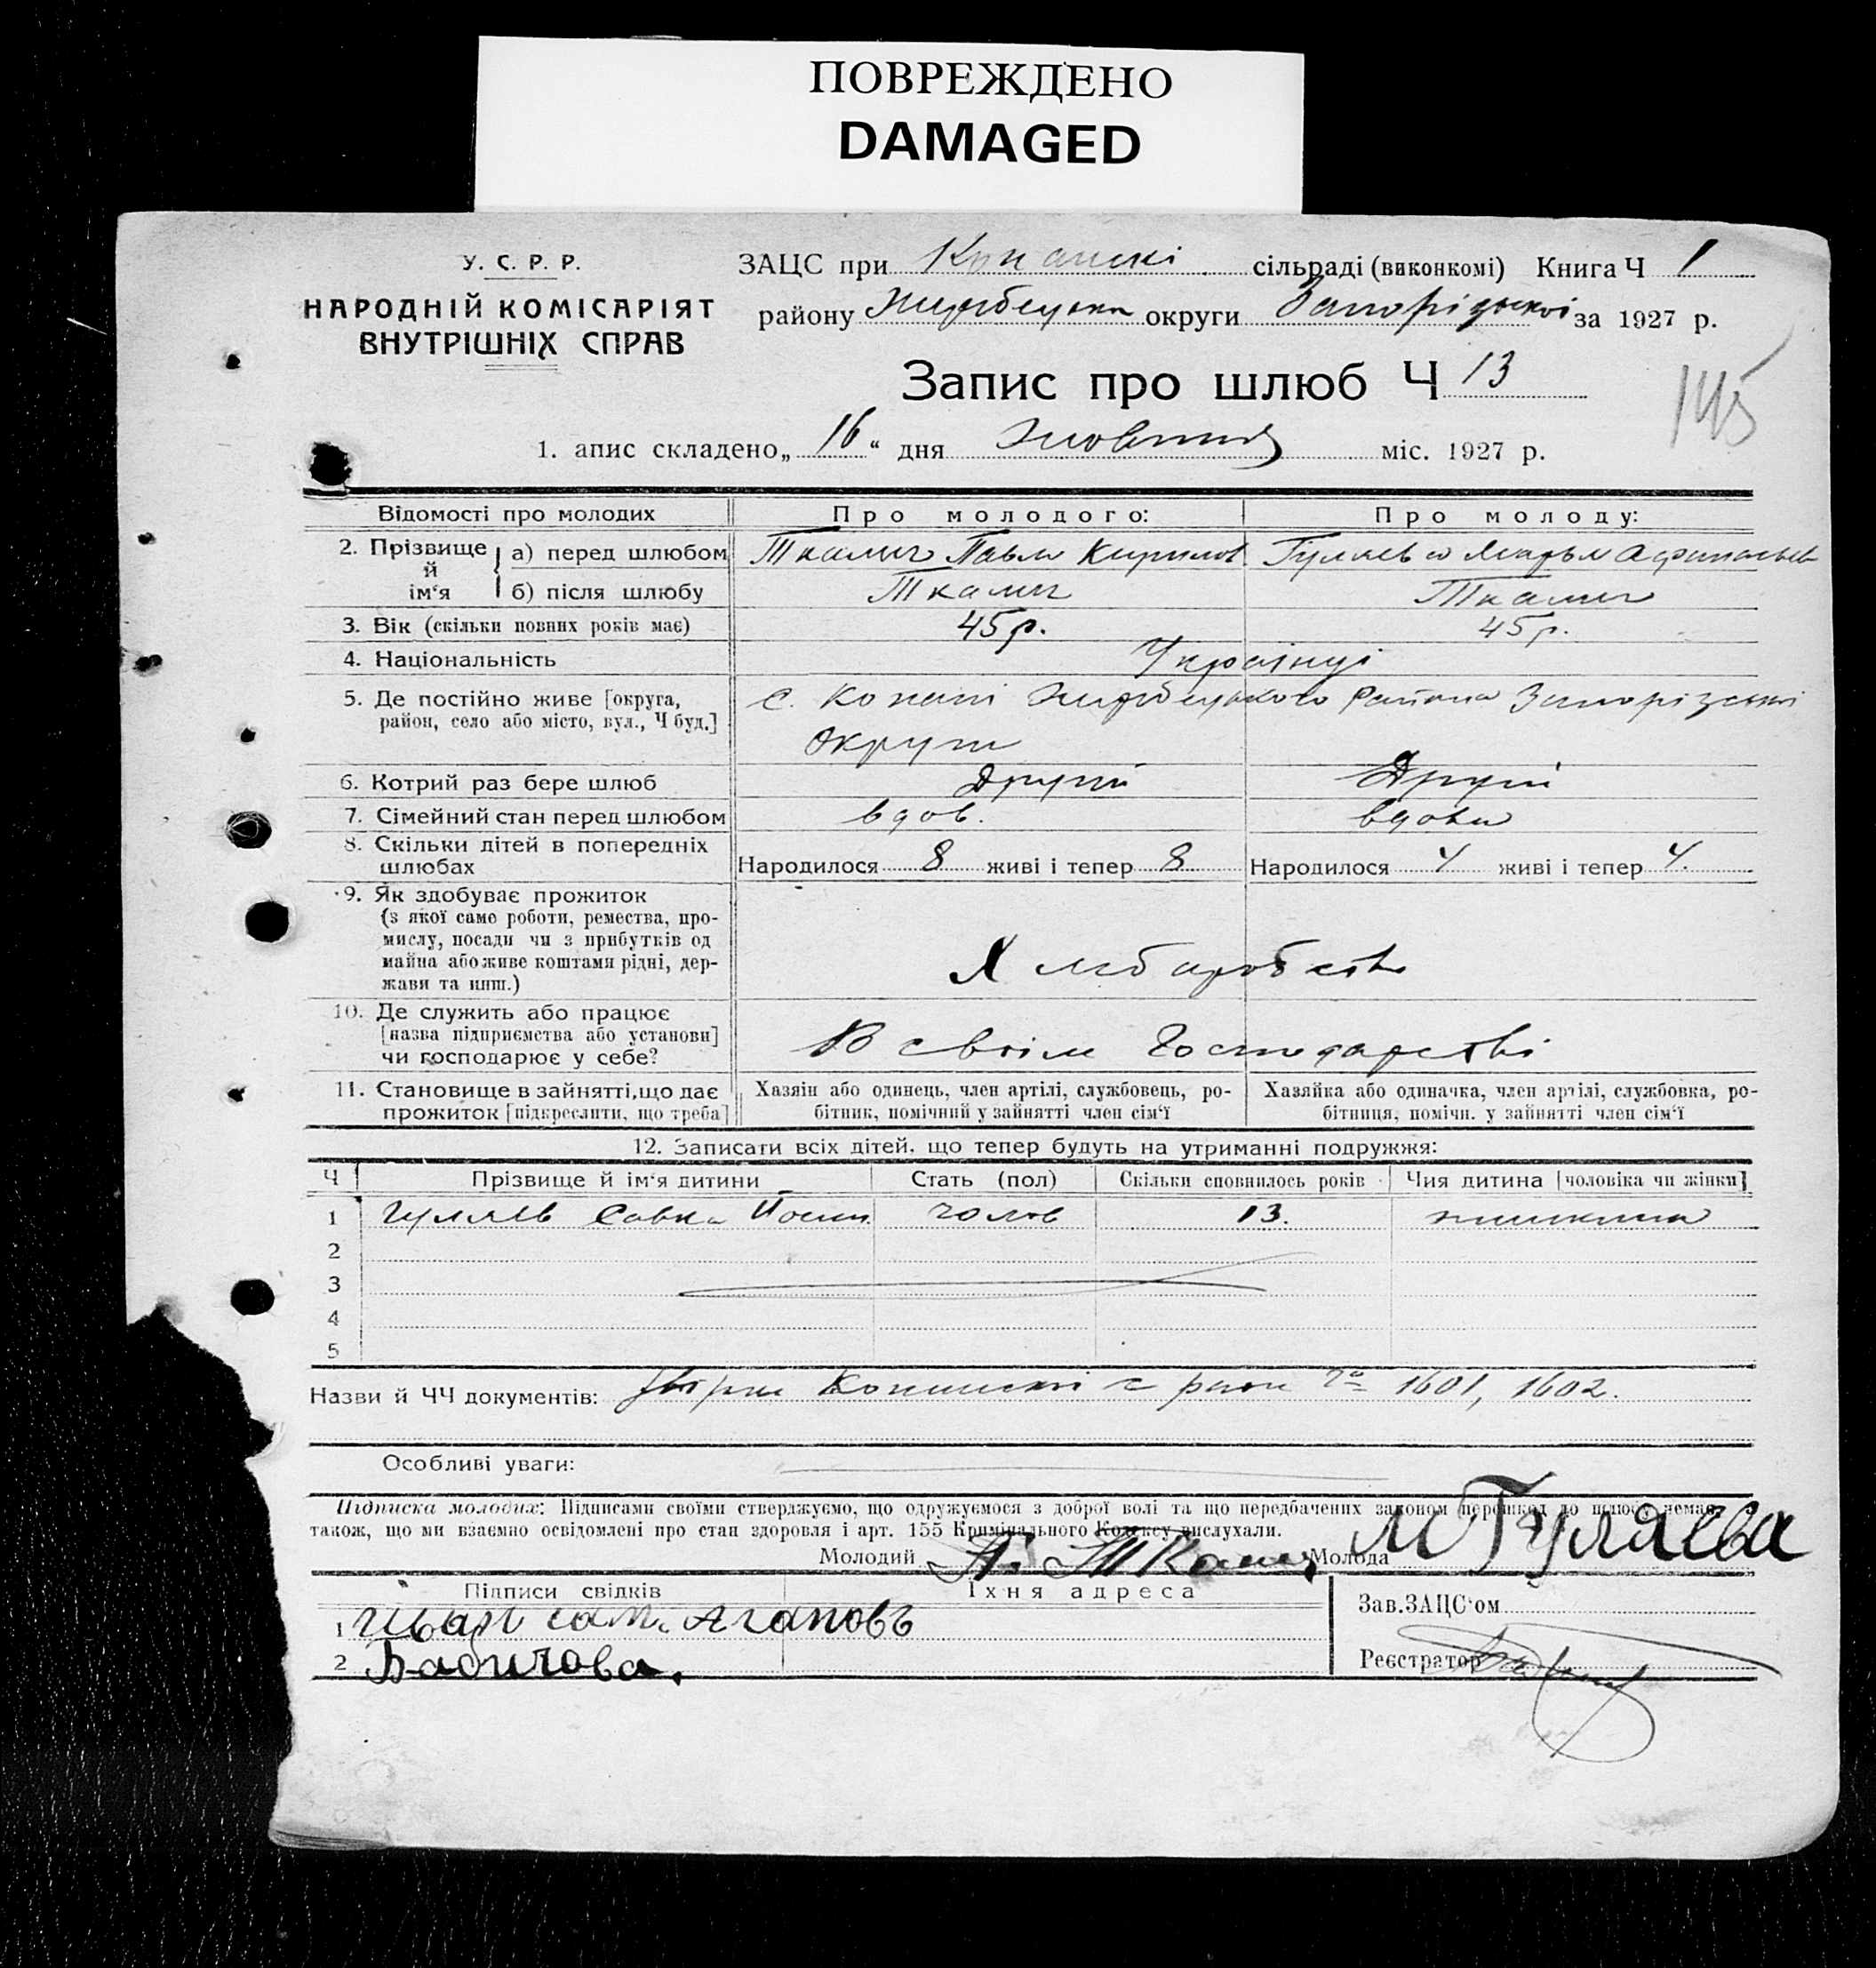 ПОВРЕЖДЕНО
DAMAGED
У. С. Р. Р.
НАРОДНІЙ КОМІСАРІЯТ
ВНУТРІШНІХ СПРАВ
ЗАЦС при сільраді (виконкомі) Книга Ч 1
району округи Запорізької за 1927 р.
Запис про шлюб Ч 13
145
1. апис складено „ 16 “ дня жовтня міс. 1927 р.
Відомості про молодих
Про молодого:
Про молоду:
2. Прізвище й ім'я
а) перед шлюбом
Ткалич Павло Кирилов
Гуляева Марья
б) після шлюбу
Ткалич
Ткалич
3. Вік (скільки повних років має)
45 р.
45 р.
4. Національність
Українці
5. Де постійно живе [округа, район, село або місто, вул., Ч буд.]
с. Копані района Запорізької
округи
6. Котрий раз бере шлюб
Другий
Другий
7. Сімейний стан перед шлюбом
вдов.
вдова
8. Скільки дітей в попередніх шлюбах
Народилося 8 живі і тепер 8
Народилося 4 живі і тепер 4.
9. Як здобуває прожиток
(з якої само роботи, ремества, про-
мислу, посади чи з прибутків од
майна або живе коштами рідні, дер-
жави та инш.)
10. Де служить або працює
[назва підприємства або установи]
чи господарює у себе?
В своїм господарстві
11. Становище в зайнятті, що дає
прожиток [підкреслити, що треба]
Хазяїн або одинець, член артілі, службовець, ро-
бітник, помічний у зайнятті член сім'ї
Хазяйка або одиначка, член артілі, службовка, ро-
бітниця, помічн. у зайнятті член сім'ї
12. Записати всіх дітей, що тепер будуть на утриманні подружжя:
Ч Прізвище й ім'я дитини Стать (пол) Скільки сповнилось років Чия дитина [чоловіка чи жінки]
1 Гуляєв Савка чолов 13.
2
3
4
5
Назви й ЧЧ документів: 1601, 1602.
Особливі уваги:
Підписка молодих: Підписами своїми стверджуємо, що одружуємося з доброї волі та що передбачених законом перешкод до шлюбу немає,
також, що ми взаємно освідомлені про стан здоровля і арт. 155 Кримінального Кодексу вислухали.
Молодий П. Ткалич Молода М Гуляева
Підписи свідків
Їхня адреса
Зав. ЗАЦС'ом
1 Агаповъ
2 Бабичова.
Реєстратор